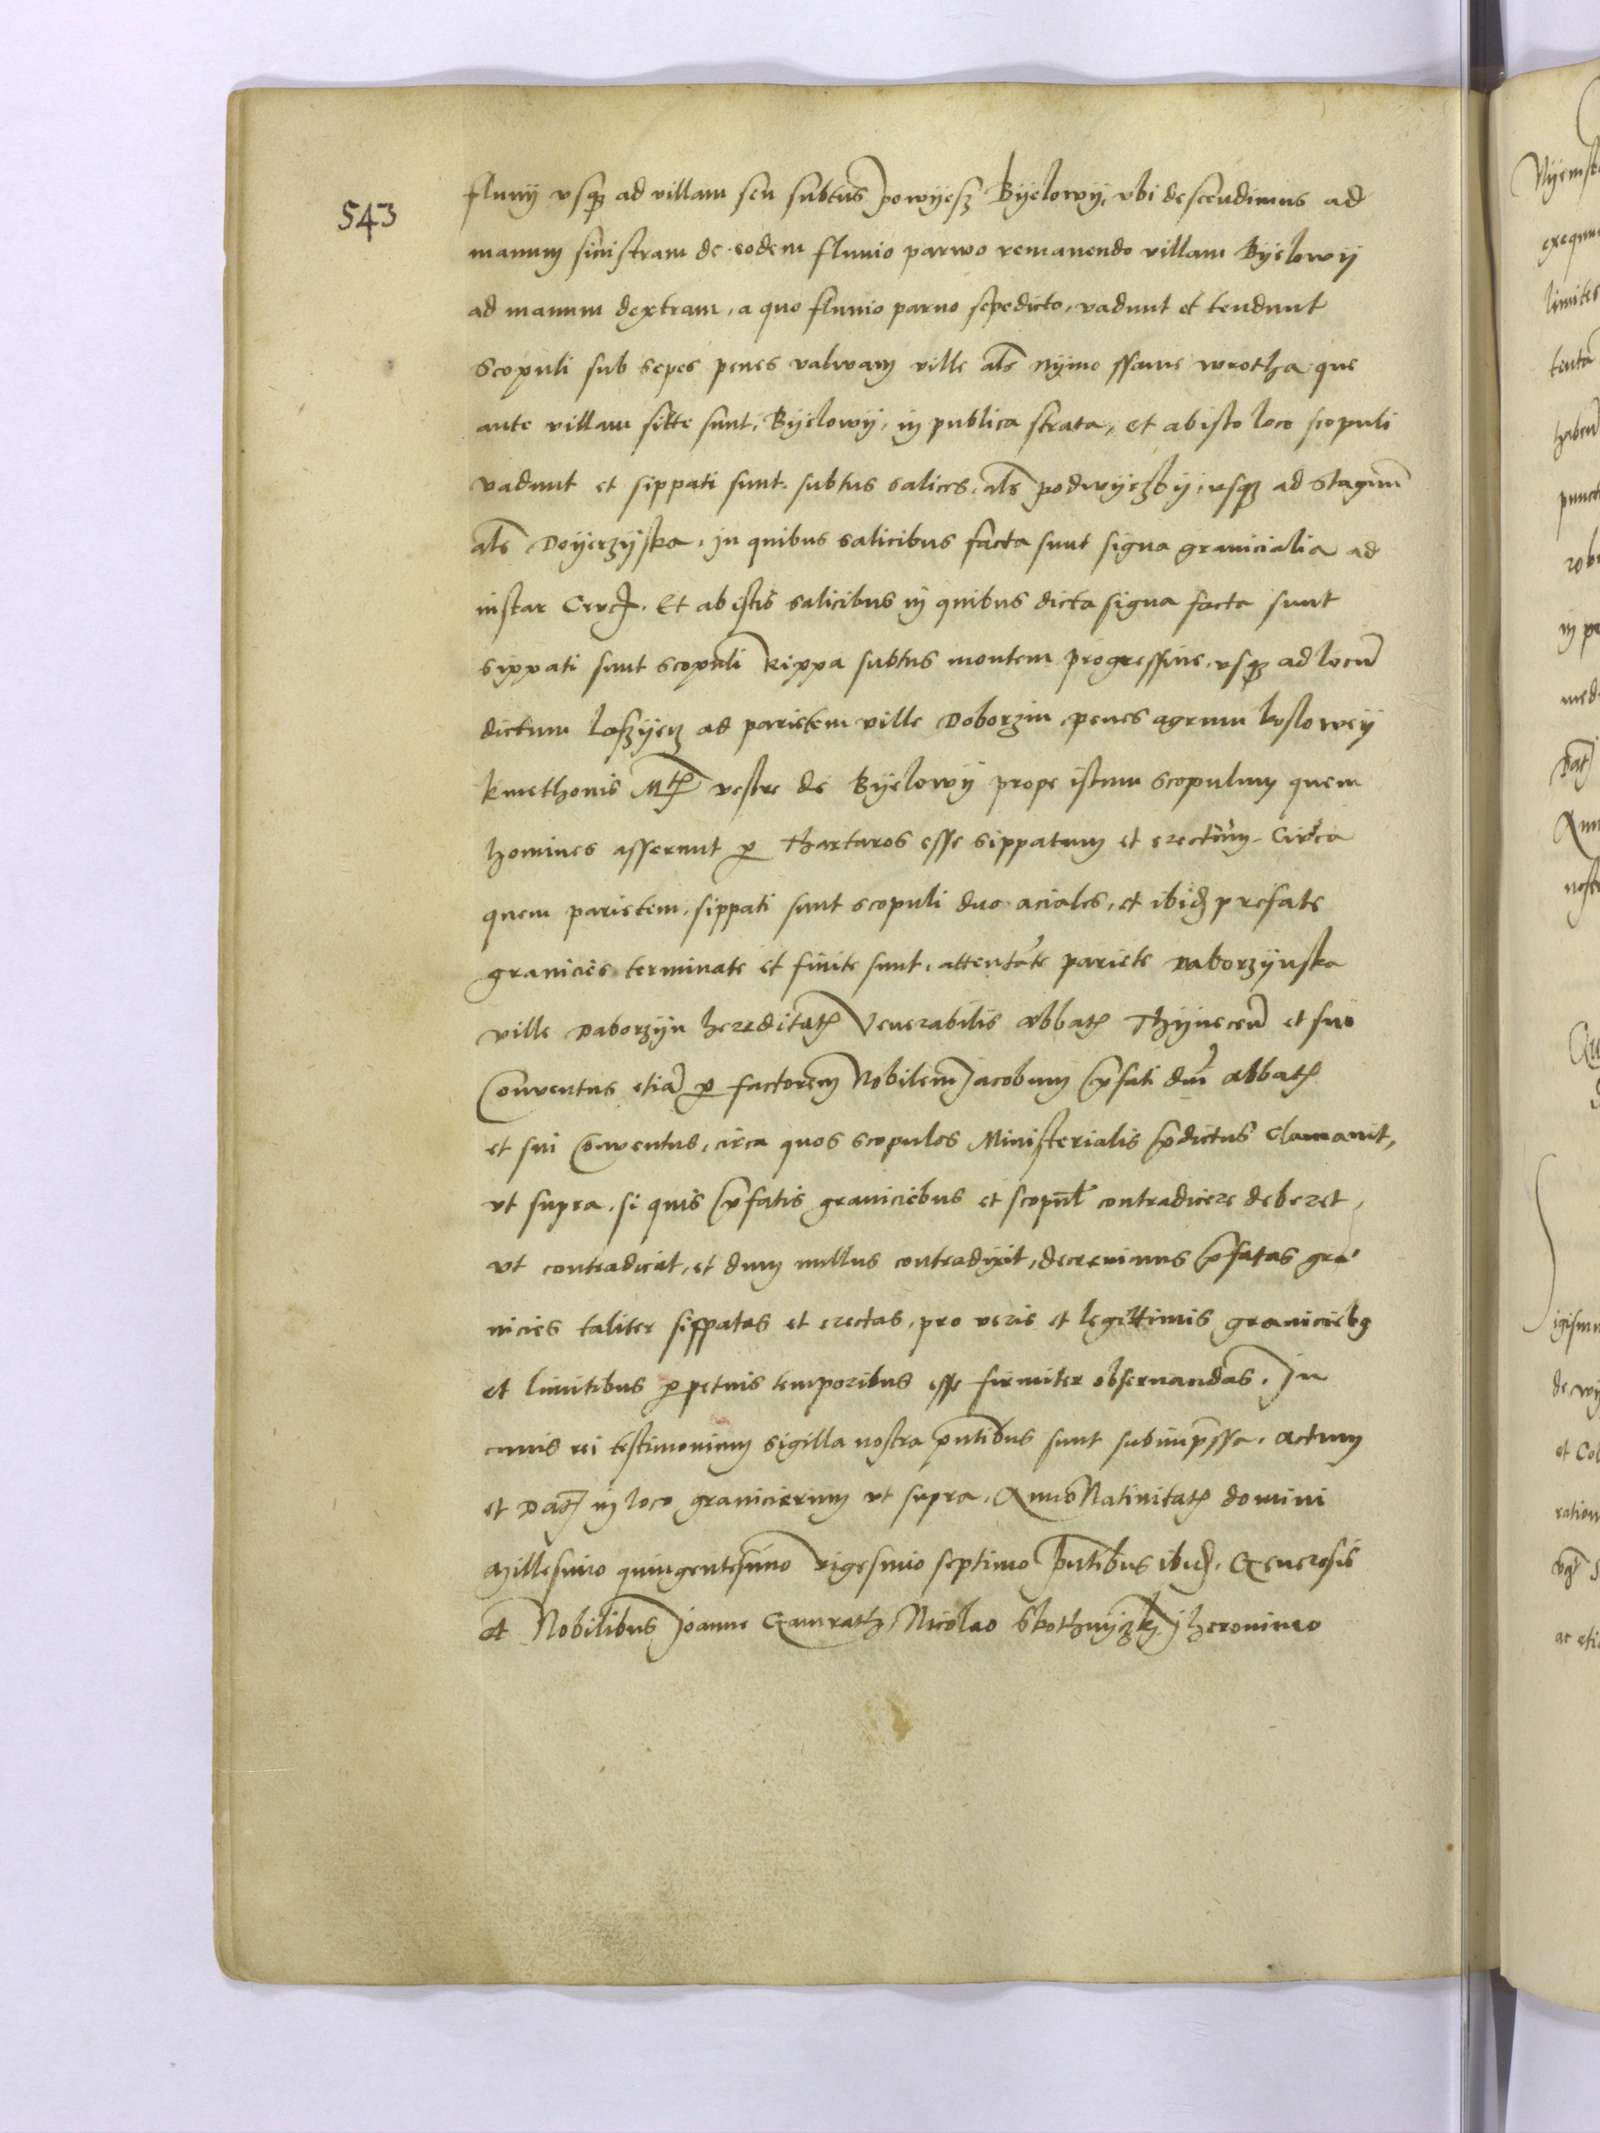 543
fluuij vsq3 ad villam seu subtus powyesz Byelowy, vbi descendimus ad
manum sinistram de eodem fluuio parwo remanendo villam Byelowy
ad manum dextram, a quo fluuio paruo sepedicto, vadunt et tendunt
Scopuli sub sepes penes valwam ville als nyme ssame wrotha que
ante villam sitte sunt, Byelowy, in publica strata, et ab isto loco scopuli
vadunt et sippati sunt subtus salices, als podwyerzby, vsq3 ad Stagnū
als Doyerzyska, in quibus salicibus facta sunt signa granicialia ad
instar Crucis. Et ab istis salicibus in quibus dicta signa facta sunt
sippati sunt scopuli kippa subtus montem progressiue, vsq3 ad locū
dictum Laszyecz ad parietem ville Doborzin penes agrum koslowey
kmethonis Mtis vestre de Byelowy prope istum scopulum quem
homines asserunt p Thartaros esse sippatum et erectum. Circa
quem parietem, sippati sunt scopuli duo aciales, et ibid prefate
granicies terminate et finite sunt, attentate pariete Daborzynska
ville Daborzyn hereditatis Venerabilis abbatis Thynecen et sui
Conuentus etiā p factorem Nobilem Jacobum pfati dni abbatis
et sui Conuentus, circa quos scopulos Ministerialis pdictus clamauit,
vt supra, si quis pfatis graniciebus et scopul contradicere deberet,
vt contradicat, et dum nullus contradixit, decreuimus pfatas gra
nicies taliter sippatas et erectas, pro veris et legittimis graniciebus
et limitibus ppetuis temporibus esse firmiter obseruandas. In
cuius rei testimonium sigilla nostra pntibus sunt subimpssa. Actum
et Dat in loco granicierum vt supra, Anno Natiuitatis domini
Millesimo quingentesimo vigesimo septimo pntibus ibid, Generosis
et Nobilibus Joanne Gamrath Nicolao Skothnyczky Jheronimo